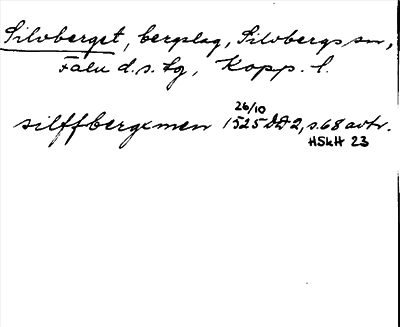 Silvberget, bergslag, Silvbergs sn,
Falu d.s. tg, Kopp. l.
silffbergxmen 26/10 1525 DD 2, s.68 avtr.
HSkH 23